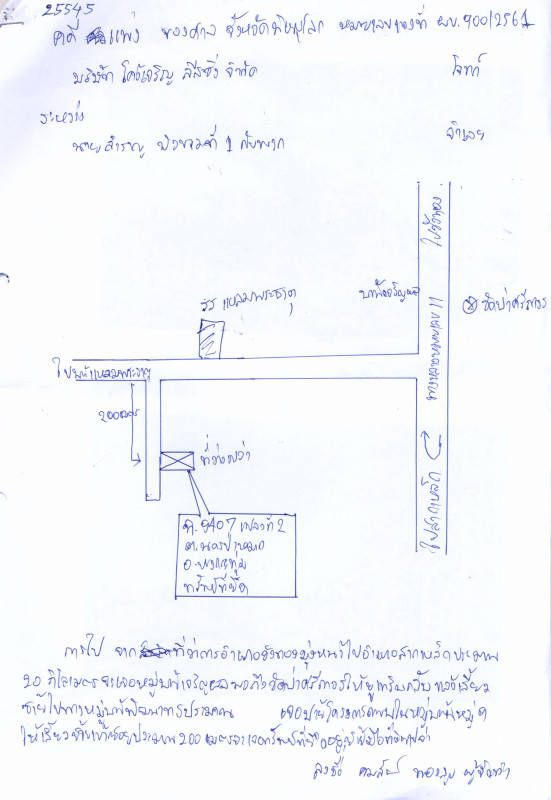 25545
คดี แพ่ง ของศาล จังหวัดพิษณุโลก หมายเลขแดงที่ ผบ.900/2561
บริษัท โค้วเจริญ ลีสซิ่ง จำกัด โจทก์
ระหว่าง
นายสำราญ ที่ 1 กับพวก จำเลย
ไปวังทอง
รร แหลมพระธาตุ
บ้านเจริญผล
วัดป่าศรีถาวร
ทางหลวงหมายเลข 11
ไปบ้านแหลมพระธาตุ
200เมตร
ที่ว่างเปล่า
ไปสากเหล็ก
ด.9407 แปลงที่ 2
ต.นครป่าหมาก
อ.บางกระทุ่ม
ทรัพย์ที่ยึด
การไป จาก ที่ว่าการอำเภอวังทองมุ่งหน้าไปอำเภอสากเหล็กประมาณ
20 กิโลเมตรจะเจอหมู่บ้านเจริญผลพอถึงวัดป่าศรีถาวรให้ยูเทิร์นกลับ แล้วเลี้ยว
ซ้ายไปทางหมู่บ้าน เจอป้ายโครงการ
ให้เลี้ยวซ้ายเข้า ประมาณ 200 เมตรจะเจอทรัพย์ที่ยึดอยู่ ที่ว่างเปล่า
ลงชื่อ สมศักดิ์ ทองสุข ผู้